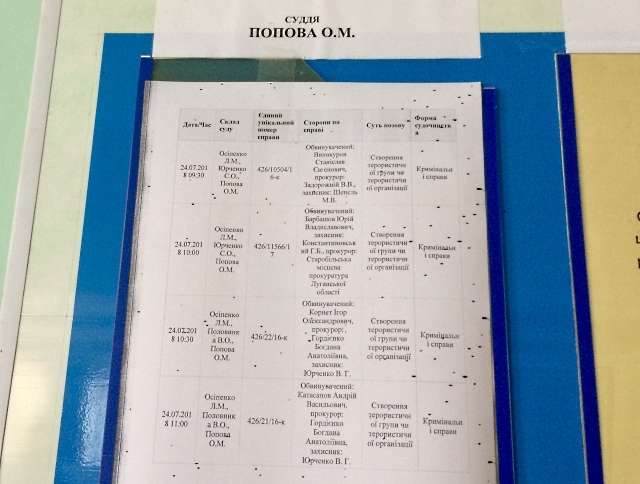 СУДДЯ
ПОПОВА О.М.
Дата/Час
Склад
суду
Єдиний
унікальний
номер
справи
Сторони по
справі
Суть позову
Форма
судочинств
а
24.07.201
8 09:30
Осіпенко
Л.М.,
Юрченко
С.О.,
Попова
О.М.
426/10504/1
6-к
Обвинувачений:
Винокуров
Станіслав
прокурор:
Задорожній В.В.,
захисник: Шепель
М.В.
Створення
терористичн
ої групи чи
терористичн
ої організації
Кримінальн
і справи
24.07.201
8 10:00
Осіпенко
Л.М.,
Юрченко
С.О.,
Попова
О.М.
426/11566/1
7
Обвинувачений:
Барбашов Юрій
Владиславович,
захисник:
Константиновськ
ий Г.Б., прокурор:
Старобільська
місцева
прокуратура
Луганської
області
Створення
терористичн
ої групи чи
терористичн
ої організації
Кримінальн
і справи
24.07.201
8 10:30
Осіпенко
Л.М.,
Половинк
а В.О.,
Попова
О.М.
426/22/16-к
Обвинувачений:
Корнет Ігор
Олександрович,
прокурор:
Гордієнко
Богдана
Анатоліївна,
захисник:
Юрченко В. Г.
Створення
терористичн
ої групи чи
терористичн
ої організації
Кримінальн
і справи
24.07.201
8 11:00
Осіпенко
Л.М.,
Половинк
а В.О.,
Попова
О.М.
426/21/16-к
Обвинувачений:
Катасанов Андрій
Васильович,
прокурор:
Гордієнко
Богдана
Анатоліївна,
захисник:
Юрченко В. Г.
Створення
терористичн
ої групи чи
терористичн
ої організації
Кримінальн
і справи